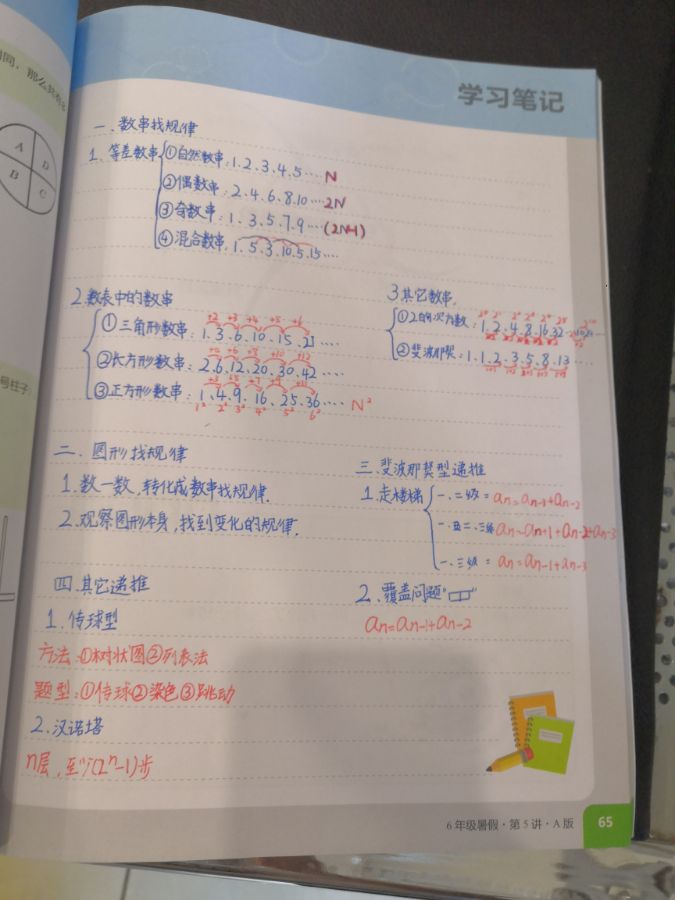 学习笔记
一、数串找规律
1. 等差数串
①自然数串：1.2.3.4.5…… N
②偶数串：2.4.6.8.10…… 2N
③奇数串：1.3.5.7.9…… (2N-1)
④混合数串：1.5.3.10.5.15……
2.数表中的数串
+2 +3 +4 +5 +6
①三角形数串：1.3.6.10.15.21……
+4 +6 +8 +10 +12
②长方形数串：2.6.12.20.30.42……
+3 +5 +7 +9 +11
③正方形数串：1.4.9.16.25.36…… N²
1² 2² 3² 4² 5² 6²
3.其它数串.
①2的次方数：1.2.4.8.16.32
②斐波那契：1.1.2.3.5.8.13……
二、图形找规律
1.数一数，转化成数串找规律.
2.观察图形本身，找到变化的规律.
三.斐波那契型递推
1.走楼梯
一、二级 = an=an-1+an-2
一、二、三级 an=an+1+an-2+an-3
一、三级 = an=an-1+an-3
2.覆盖问题
an=an-1+an-2
四.其它递推
1.传球型
方法：①树状图②列表法
题型：①传球②染色③跳动
2.汉诺塔
n层，至少(2ⁿ-1)步
6年级暑假·第5讲·A版
65
A
D
B
C
号柱子；